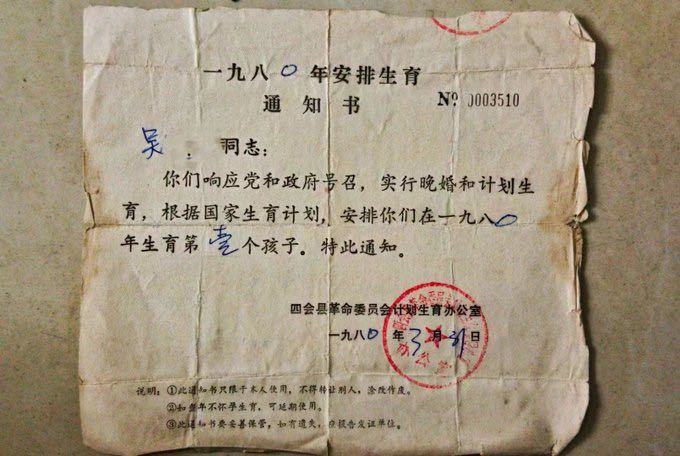 一九八0年安排生育
通知书 Nº 0003510
吴 同志：
你们响应党和政府号召，实行晚婚和计划生
育，根据国家生育计划，安排你们在一九八0
年生育第壹个孩子。特此通知。
四会县革命委员会计划生育办公室
一九八0年3月31日
说明：①此通知书只限于本人使用，不得转让别人，涂改作废。
②如当年不怀孕生育，可延期使用。
③此通知书要妥善保管，如有遗失，应报告发证单位。